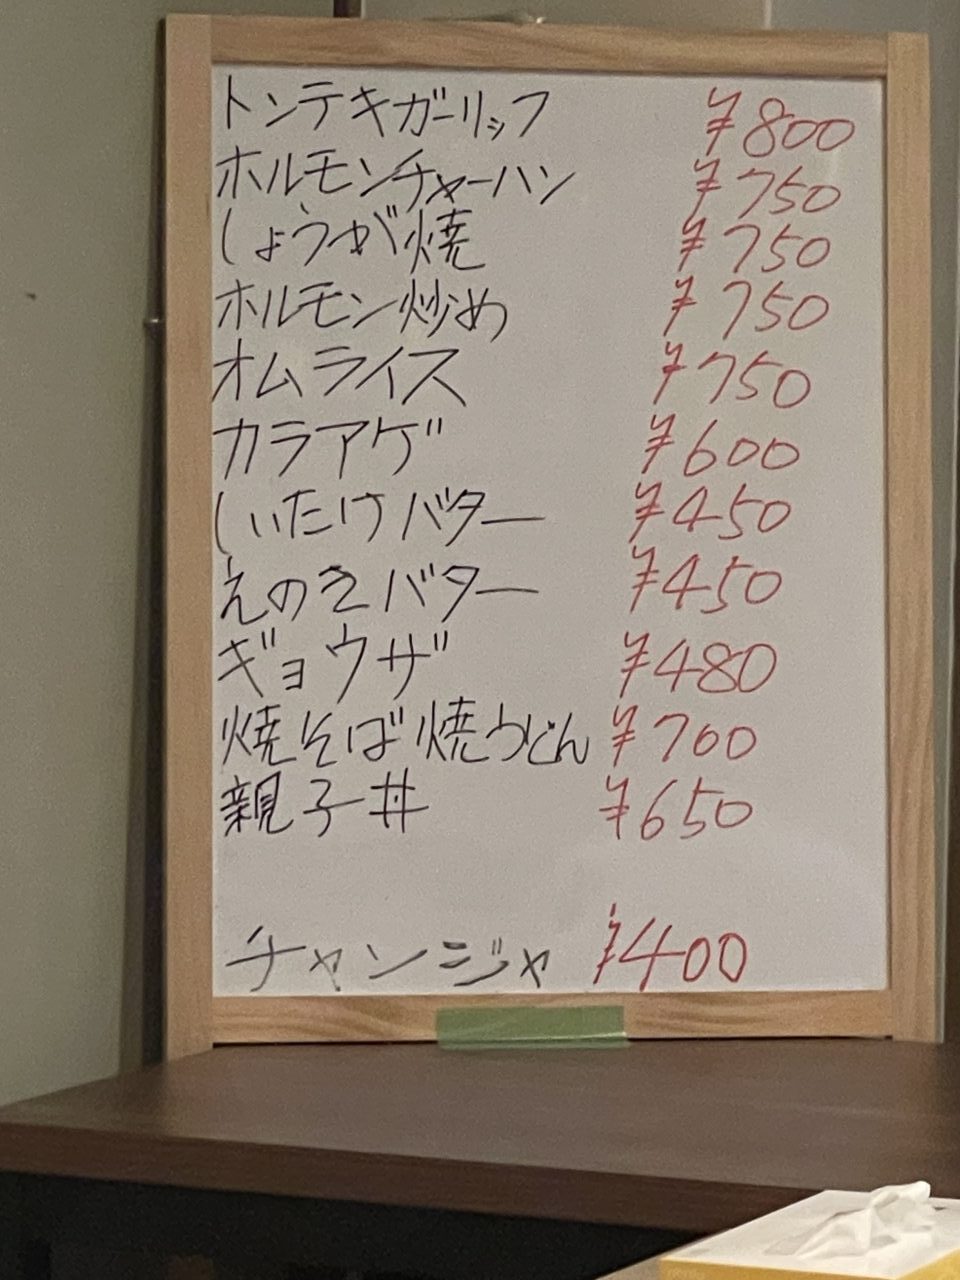 トンテキガーリック ¥800
ホルモンチャーハン ¥750
しょうが焼 ¥750
ホルモン炒め ¥750
オムライス ¥750
カラアゲ ¥600
しいたけバター ¥450
えのきバター ¥450
ギョウザ ¥480
焼そば焼うどん ¥700
親子丼 ¥650
チャンジャ ¥400